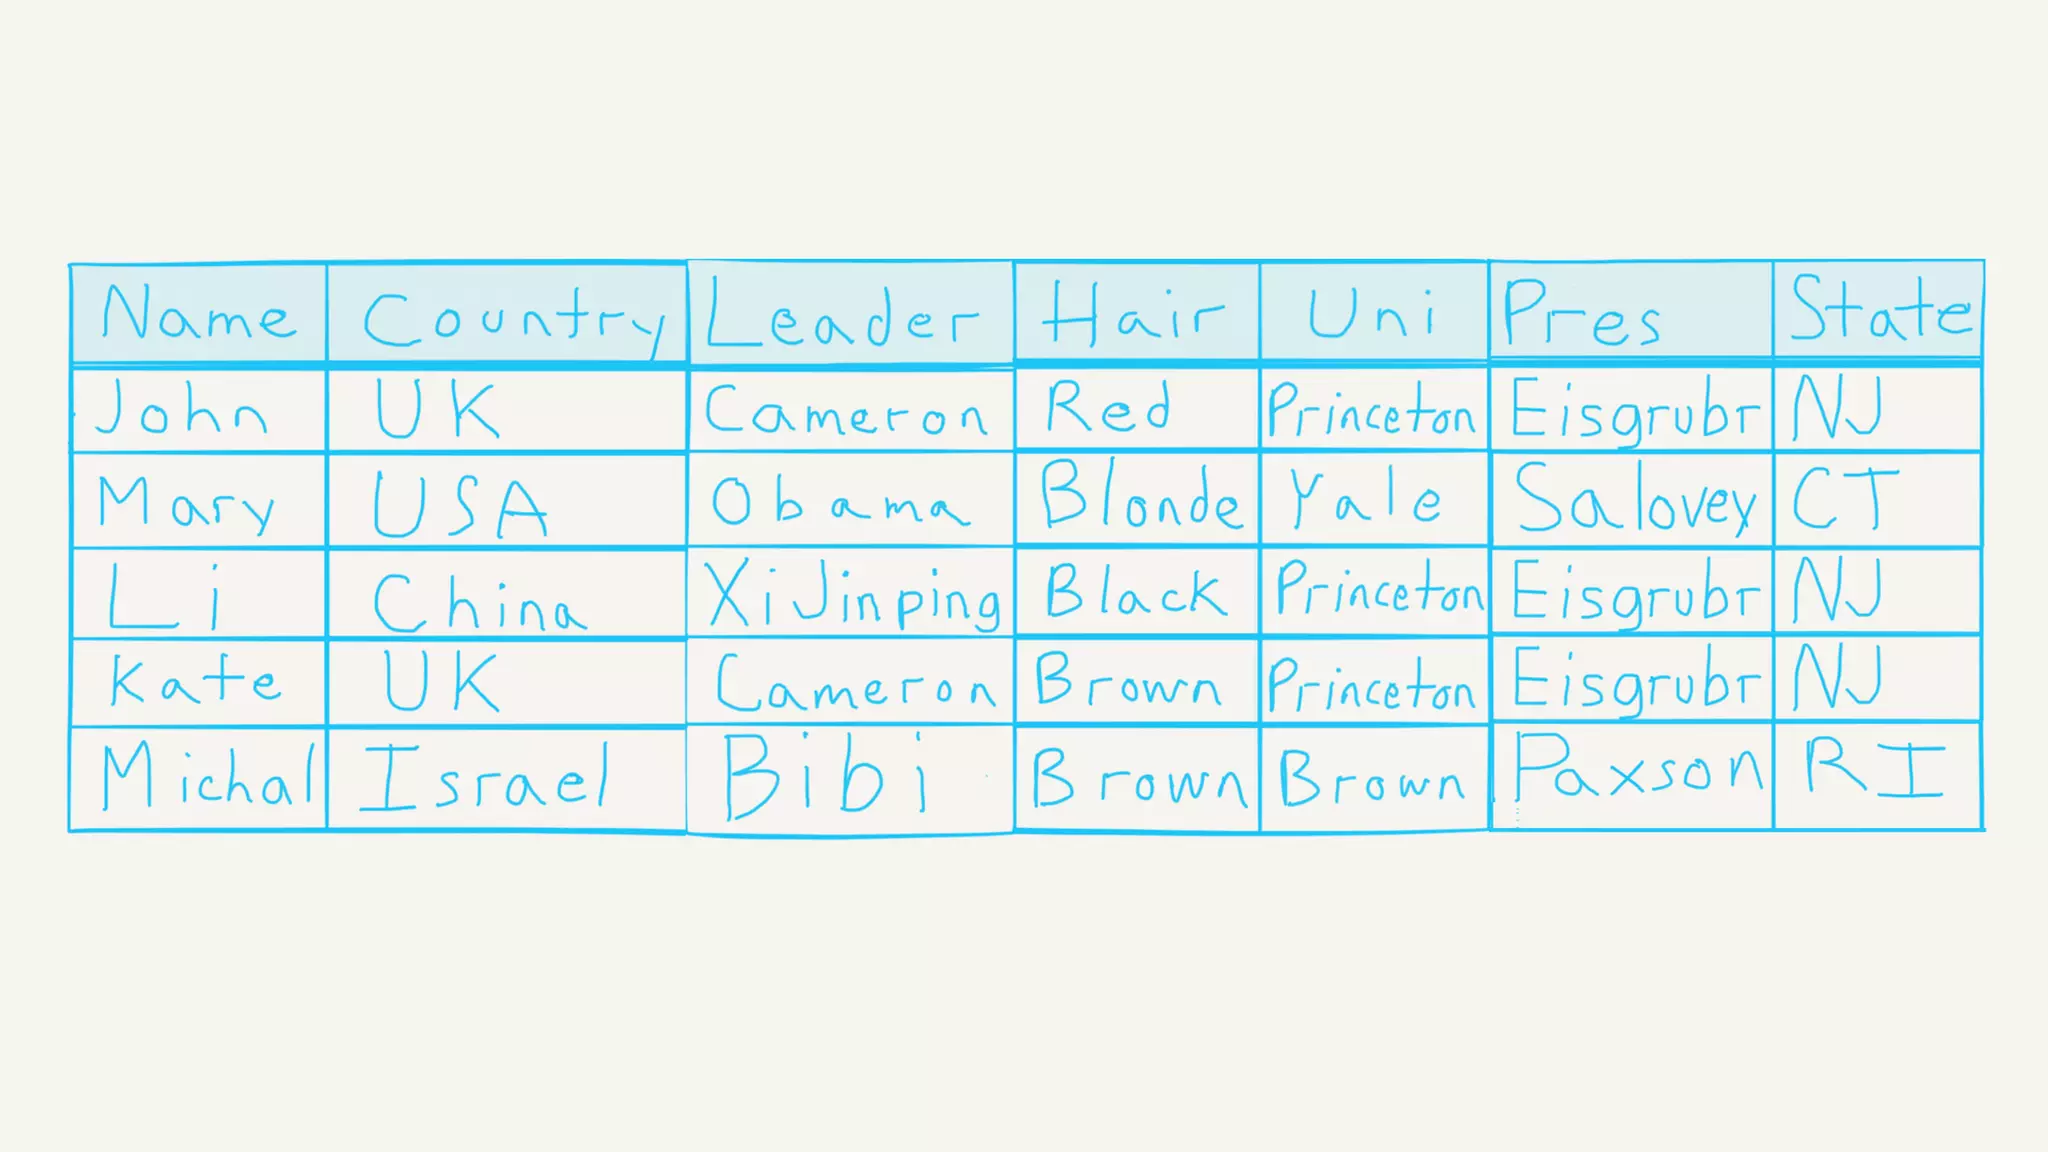 Name Country Leader Hair Uni Pres State
John UK Cameron Red Princeton Eisgrubr NJ
Mary USA Obama Blonde Yale Salovey CT
Li China Xi Jinping Black Princeton Eisgrubr NJ
Kate UK Cameron Brown Princeton Eisgrubr NJ
Michal Israel Bibi Brown Brown Paxson RI